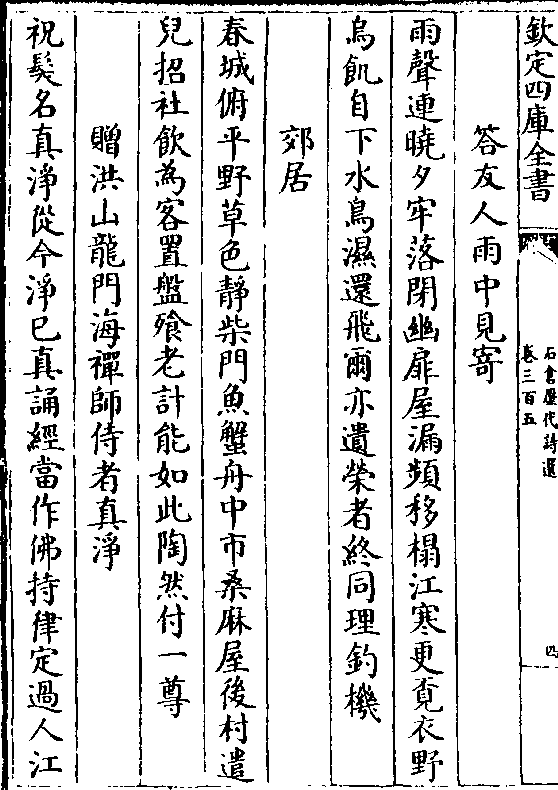 欽定四庫全書
石倉歷代詩選
卷三百五
四
答友人雨中見寄
雨聲連曉夕牢落閉幽扉屋漏頻移榻江寒更覔衣野
烏飢自下水鳥濕還飛爾亦遺榮者終同理釣機
郊居
春城俯平野草色靜柴門魚蟹舟中市桑麻屋後村遣
兒招社飲為客置盤飱老計能如此陶然付一尊
贈洪山龍門海禪師侍者真淨
祝髮名真淨從今淨已真誦經當作佛持律定過人江